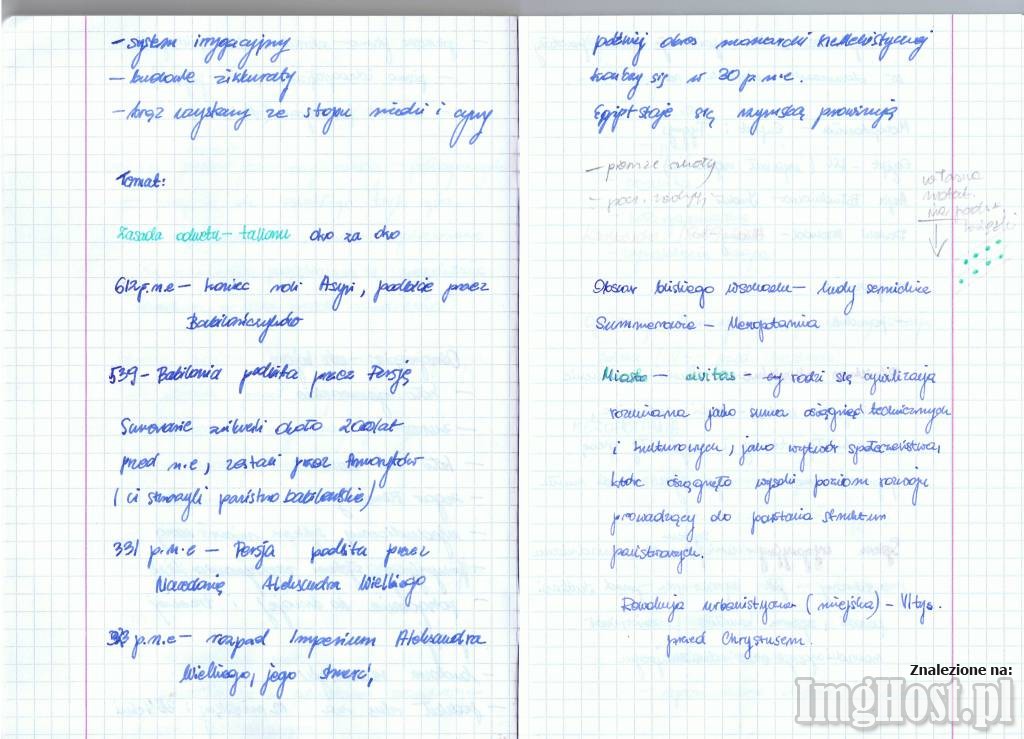 - system irygacyjny
- budowle zikkuraty
- brąz uzyskany ze stopu miedzi i cyny
Temat:
Zasada odwetu - talionu oko za oko
612 p.n.e - koniec roli Asyrii, podbicie przez
Babilończyków
539 - Babilonia podbita przez Persję
Sumerowie zniknęli około 2000 lat
przed n.e, zostali przez Amorytów
(ci stworzyli państwo babilońskie)
331 p.n.e - Persja podbita przez
Macedonię Aleksandra Wielkiego
323 p.n.e - rozpad Imperium Aleksandra
Wielkiego, jego śmierć,
później okres monarchii hellenistycznej
kończy się w 30 p.n.e.
Egipt staje się rzymską prowincją
- pierwsze
-
własna
notat.
na podst.
książki
Obszar bliskiego wschodu - ludy semickie
Summerowie - Mezopotamia
Miasto - civitas - rodzi się cywilizacja
rozumiana jako suma osiągnięć technicznych
i kulturowych, jako wytwór społeczeństwa,
które osiągnęło wysoki poziom rozwoju
prowadzący do powstania struktur
państwowych.
Rewolucja urbanistyczna (miejska) - VI tys.
przed Chrystusem.
Znalezione na:
ImgHost.pl